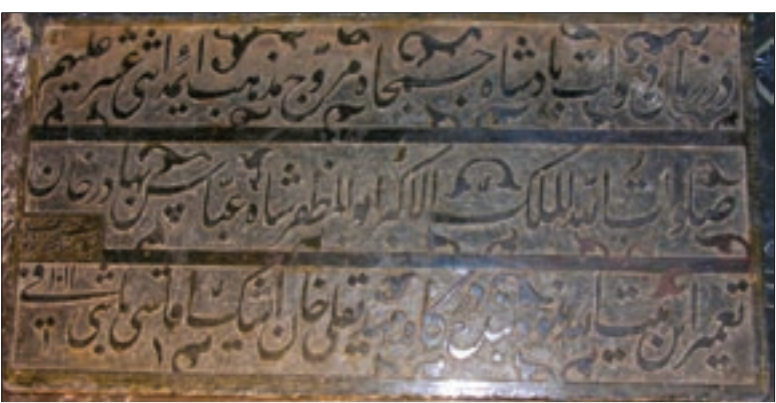 در زمان دولت پادشاه جمجاه مروج مذهب ائمه اثنی عشر علیهم
صلوات الله الملک الاکبر ابوالمظفر شاه عباس بهادر خان
تعمیر این نمود بنده درگاه علی خان ایشیک آقاسی باشی فی